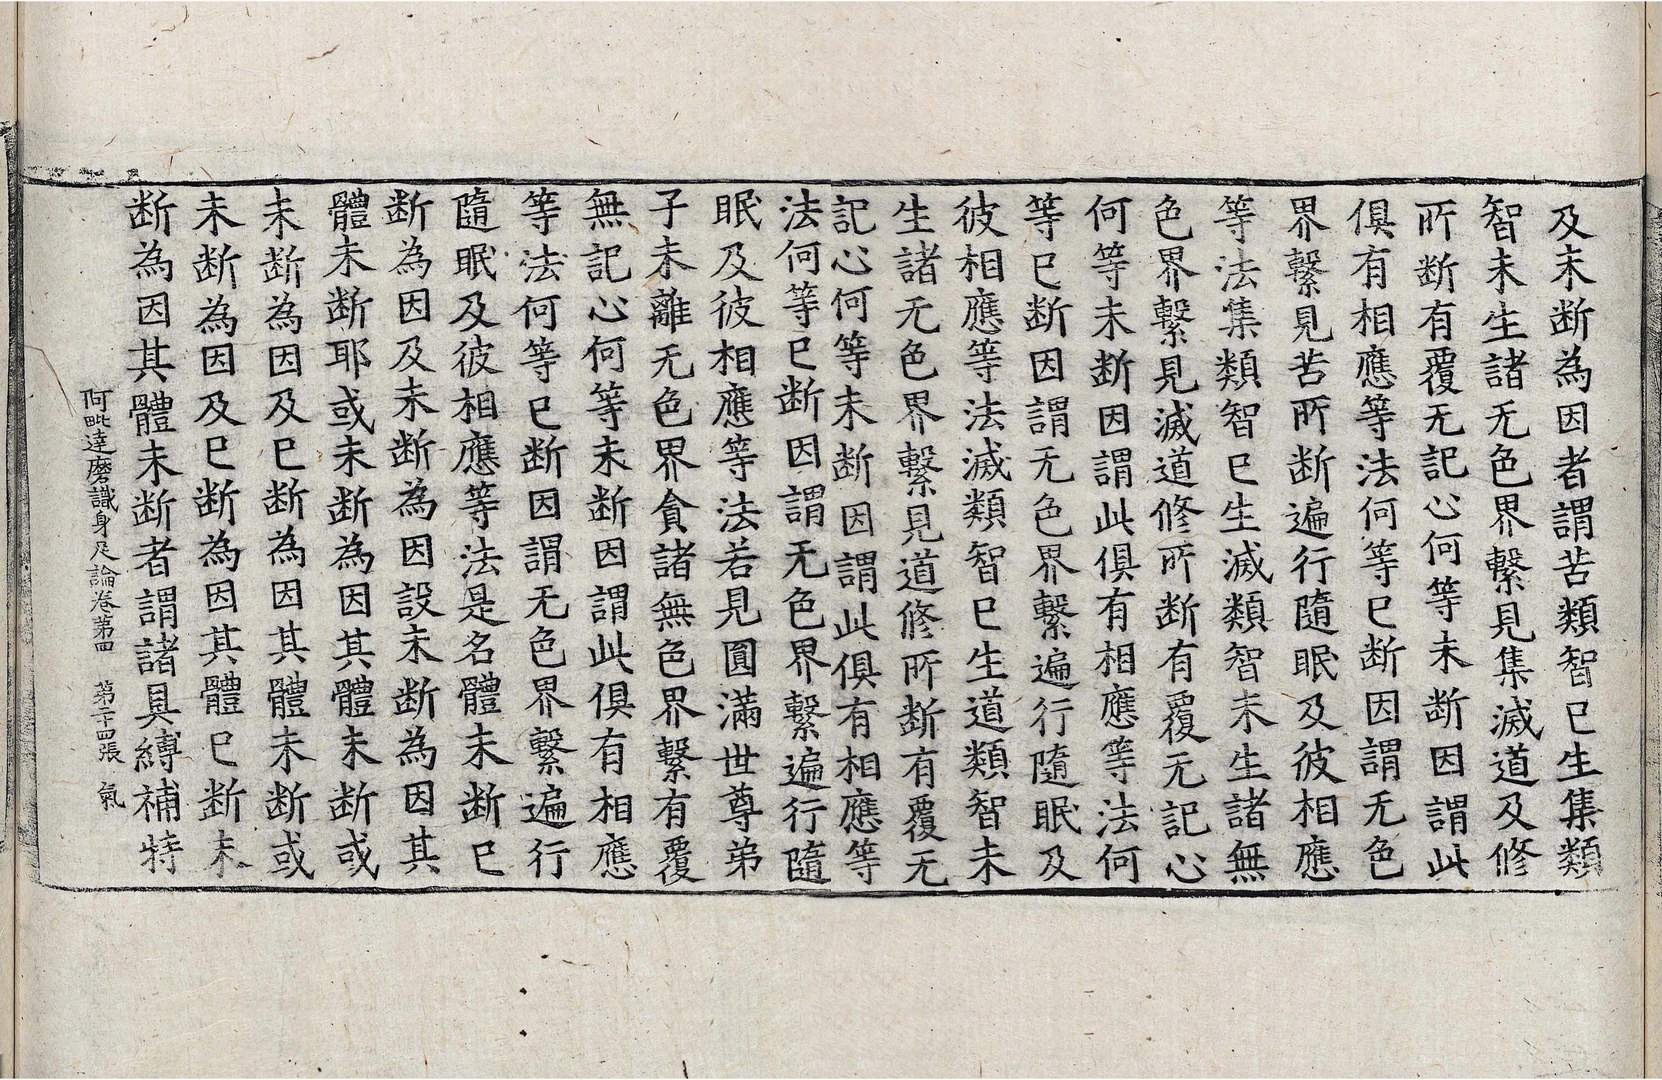 及未断為因者謂苦類智已生集類
智未生諸无色界繫見集滅道及修
所断有覆无記心何等未断因謂此
俱有相應等法何等已断因謂无色
界繫見苦所断遍行隨眠及彼相應
等法集類智已生滅類智未生諸無
色界繫見滅道修所断有覆无記心
何等未断因謂此俱有相應等法何
等已断因謂无色界繫遍行隨眠及
彼相應等法滅類智已生道類智未
生諸无色界繫見道修所断有覆无
記心何等未断因謂此俱有相應等
法何等已断因謂无色界繫遍行隨
眠及彼相應等法若見圓滿世尊弟
子未離无色界貪諸無色界繫有覆
無記心何等未断因謂此俱有相應
等法何等已断因謂无色界繫遍行
隨眠及彼相應等法是名體未断已
断為因及未断為因設未断為因其
體未断耶或未断為因其體未断或
未断為因及已断為因其體未断或
未断為因及已断為因其體已断未
断為因其體未断者謂諸具縛補特
阿毗達磨識身足論卷第四 第二十四張 氣